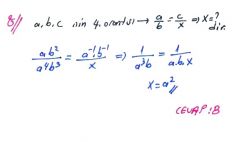 8// a, b, c nin 4. orantısı → a/b = c/x ⇒ x = ? dir.
ab²/a⁴b³ = a⁻¹.b⁻¹/x ⇒ 1/a³b = 1/a.b.x
x = a² //
CEVAP: B